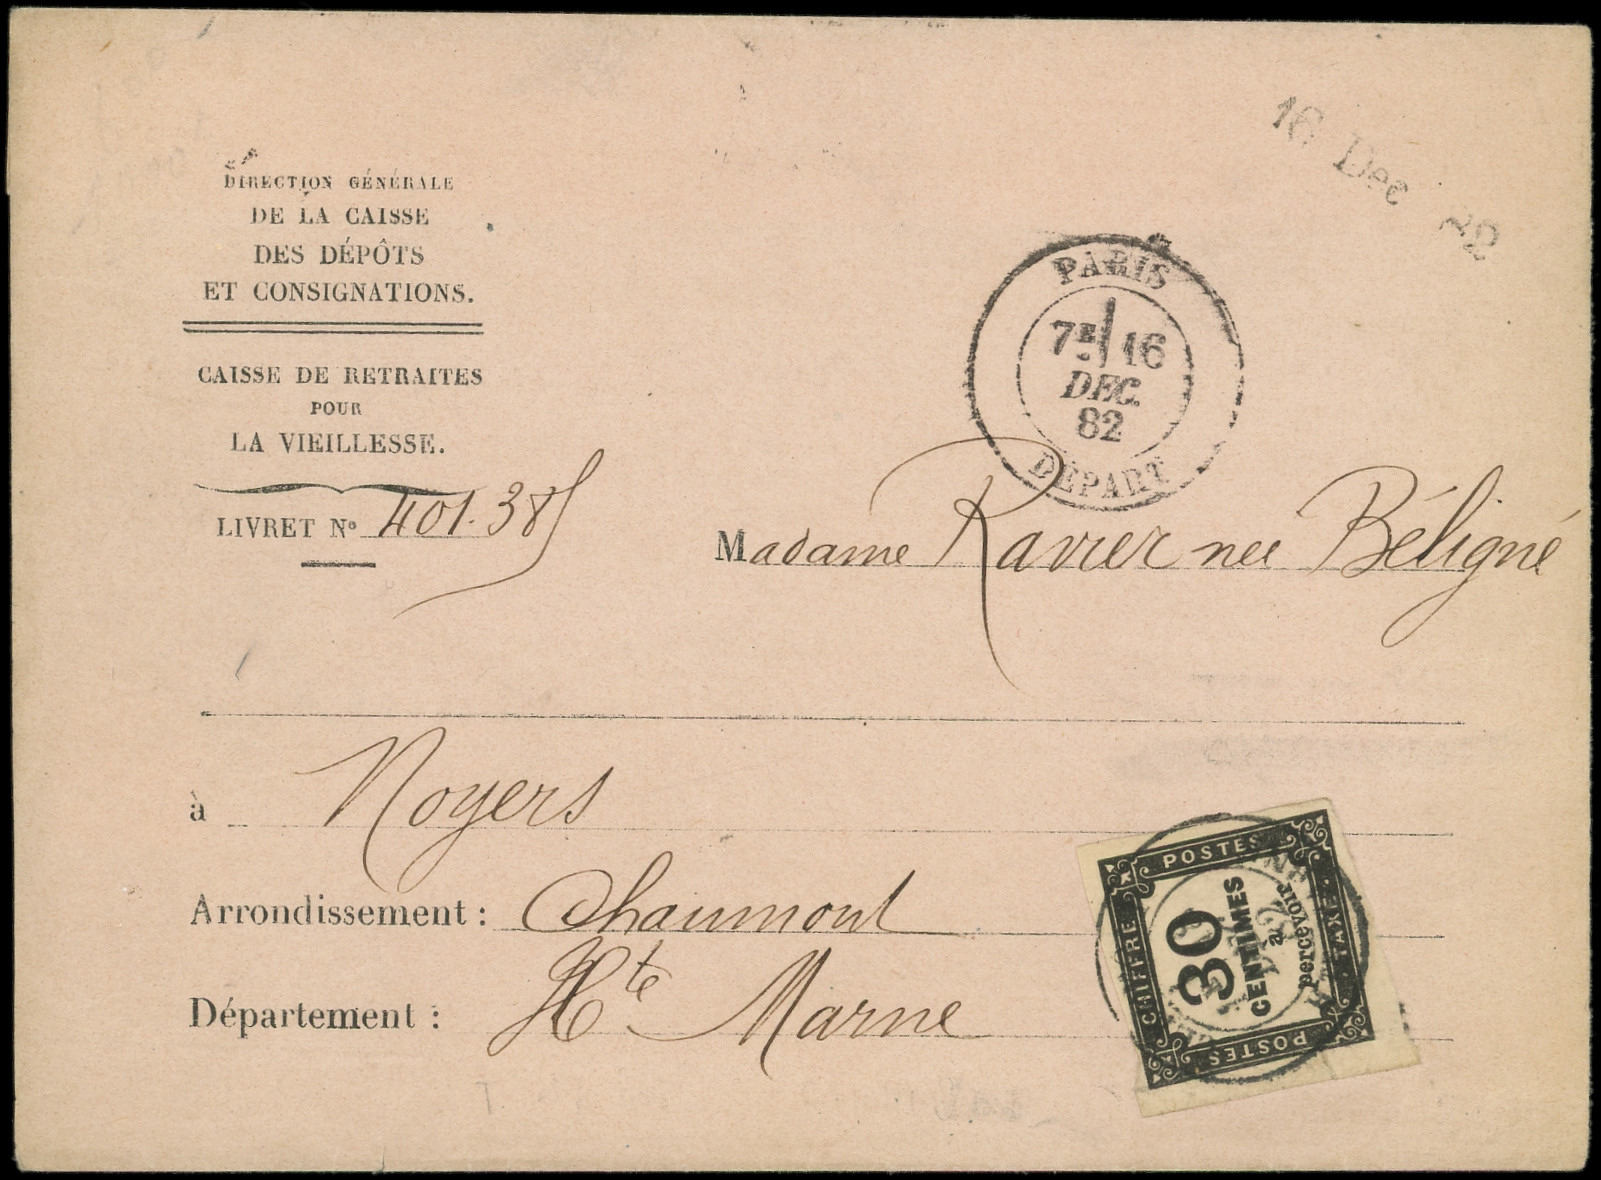 16 Dec
DIRECTION GÉNÉRALE
DE LA CAISSE
DES DÉPÔTS
ET CONSIGNATIONS.
CAISSE DE RETRAITES
POUR
LA VIEILLESSE.
LIVRET No 401.385
PARIS
7E 16
DEC.
82
DÉPART
Madame Ravier née Béligné
à Noyers
Arrondissement : Chaumont
Département : Hte Marne
POSTES
CHIFFRE
30
CENTIMES
à
percevoir
TAXE
POSTES